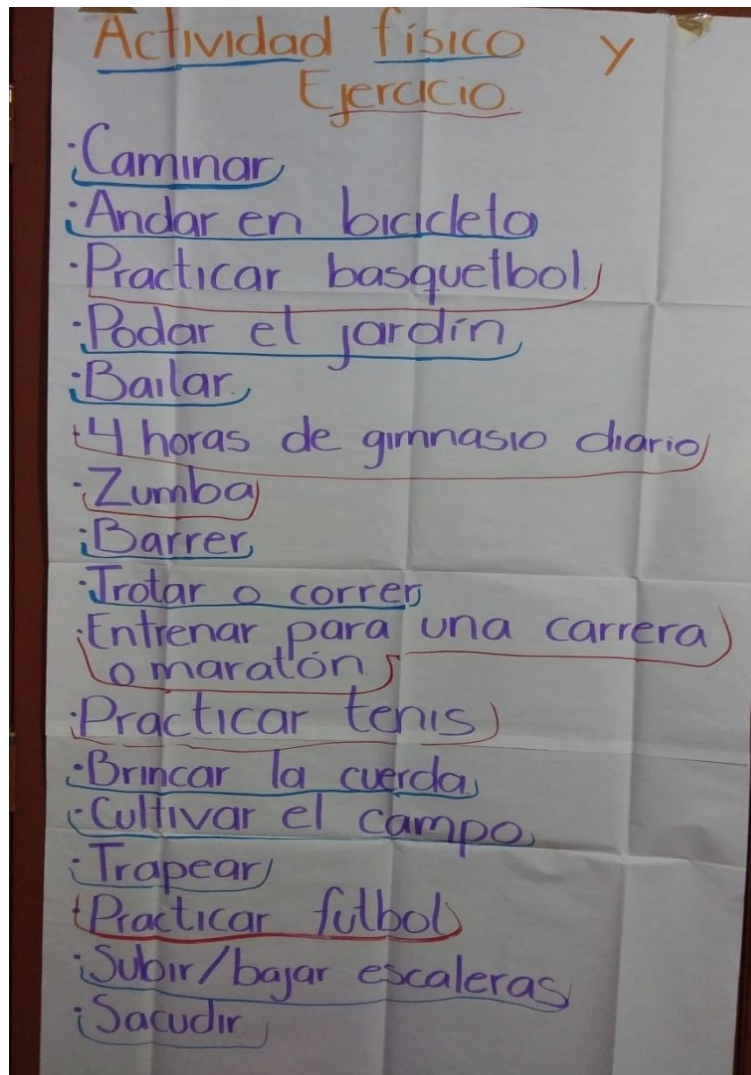 Actividad físico y
Ejercicio
·Caminar
·Andar en bicicleta
·Practicar basquetbol.
·Podar el jardín
·Bailar.
·4 horas de gimnasio diario
·Zumba
·Barrer
·Trotar o correr
·Entrenar para una carrera
o maratón
·Practicar tenis
·Brincar la cuerda
·Cultivar el campo
·Trapear
·Practicar futbol
·Subir/bajar escaleras
·Sacudir